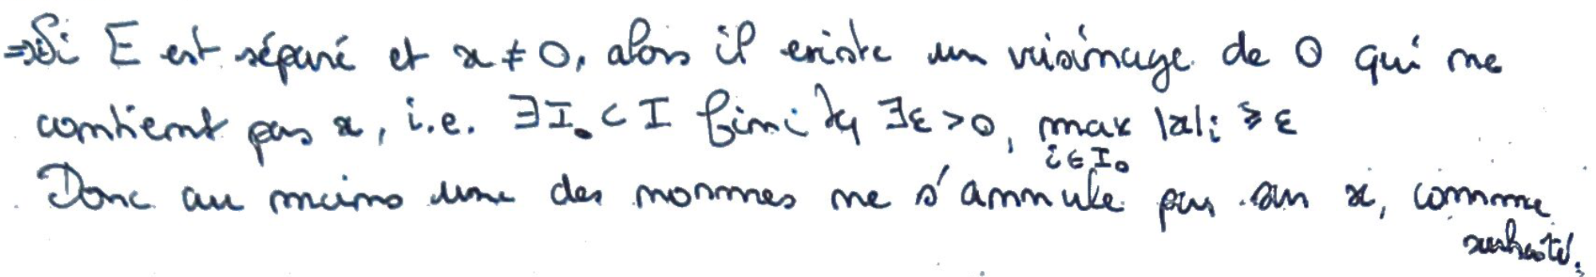 ⇒ Si E est séparé et x ≠ 0, alors il existe un voisinage de 0 qui ne
contient pas x, i.e. ∃I₀ ⊂ I fini tq ∃ε > 0, max |x|ᵢ ≥ ε
i ∈ I₀
Donc au moins une des normes ne s'annule pas sur x, comme
souhaité.